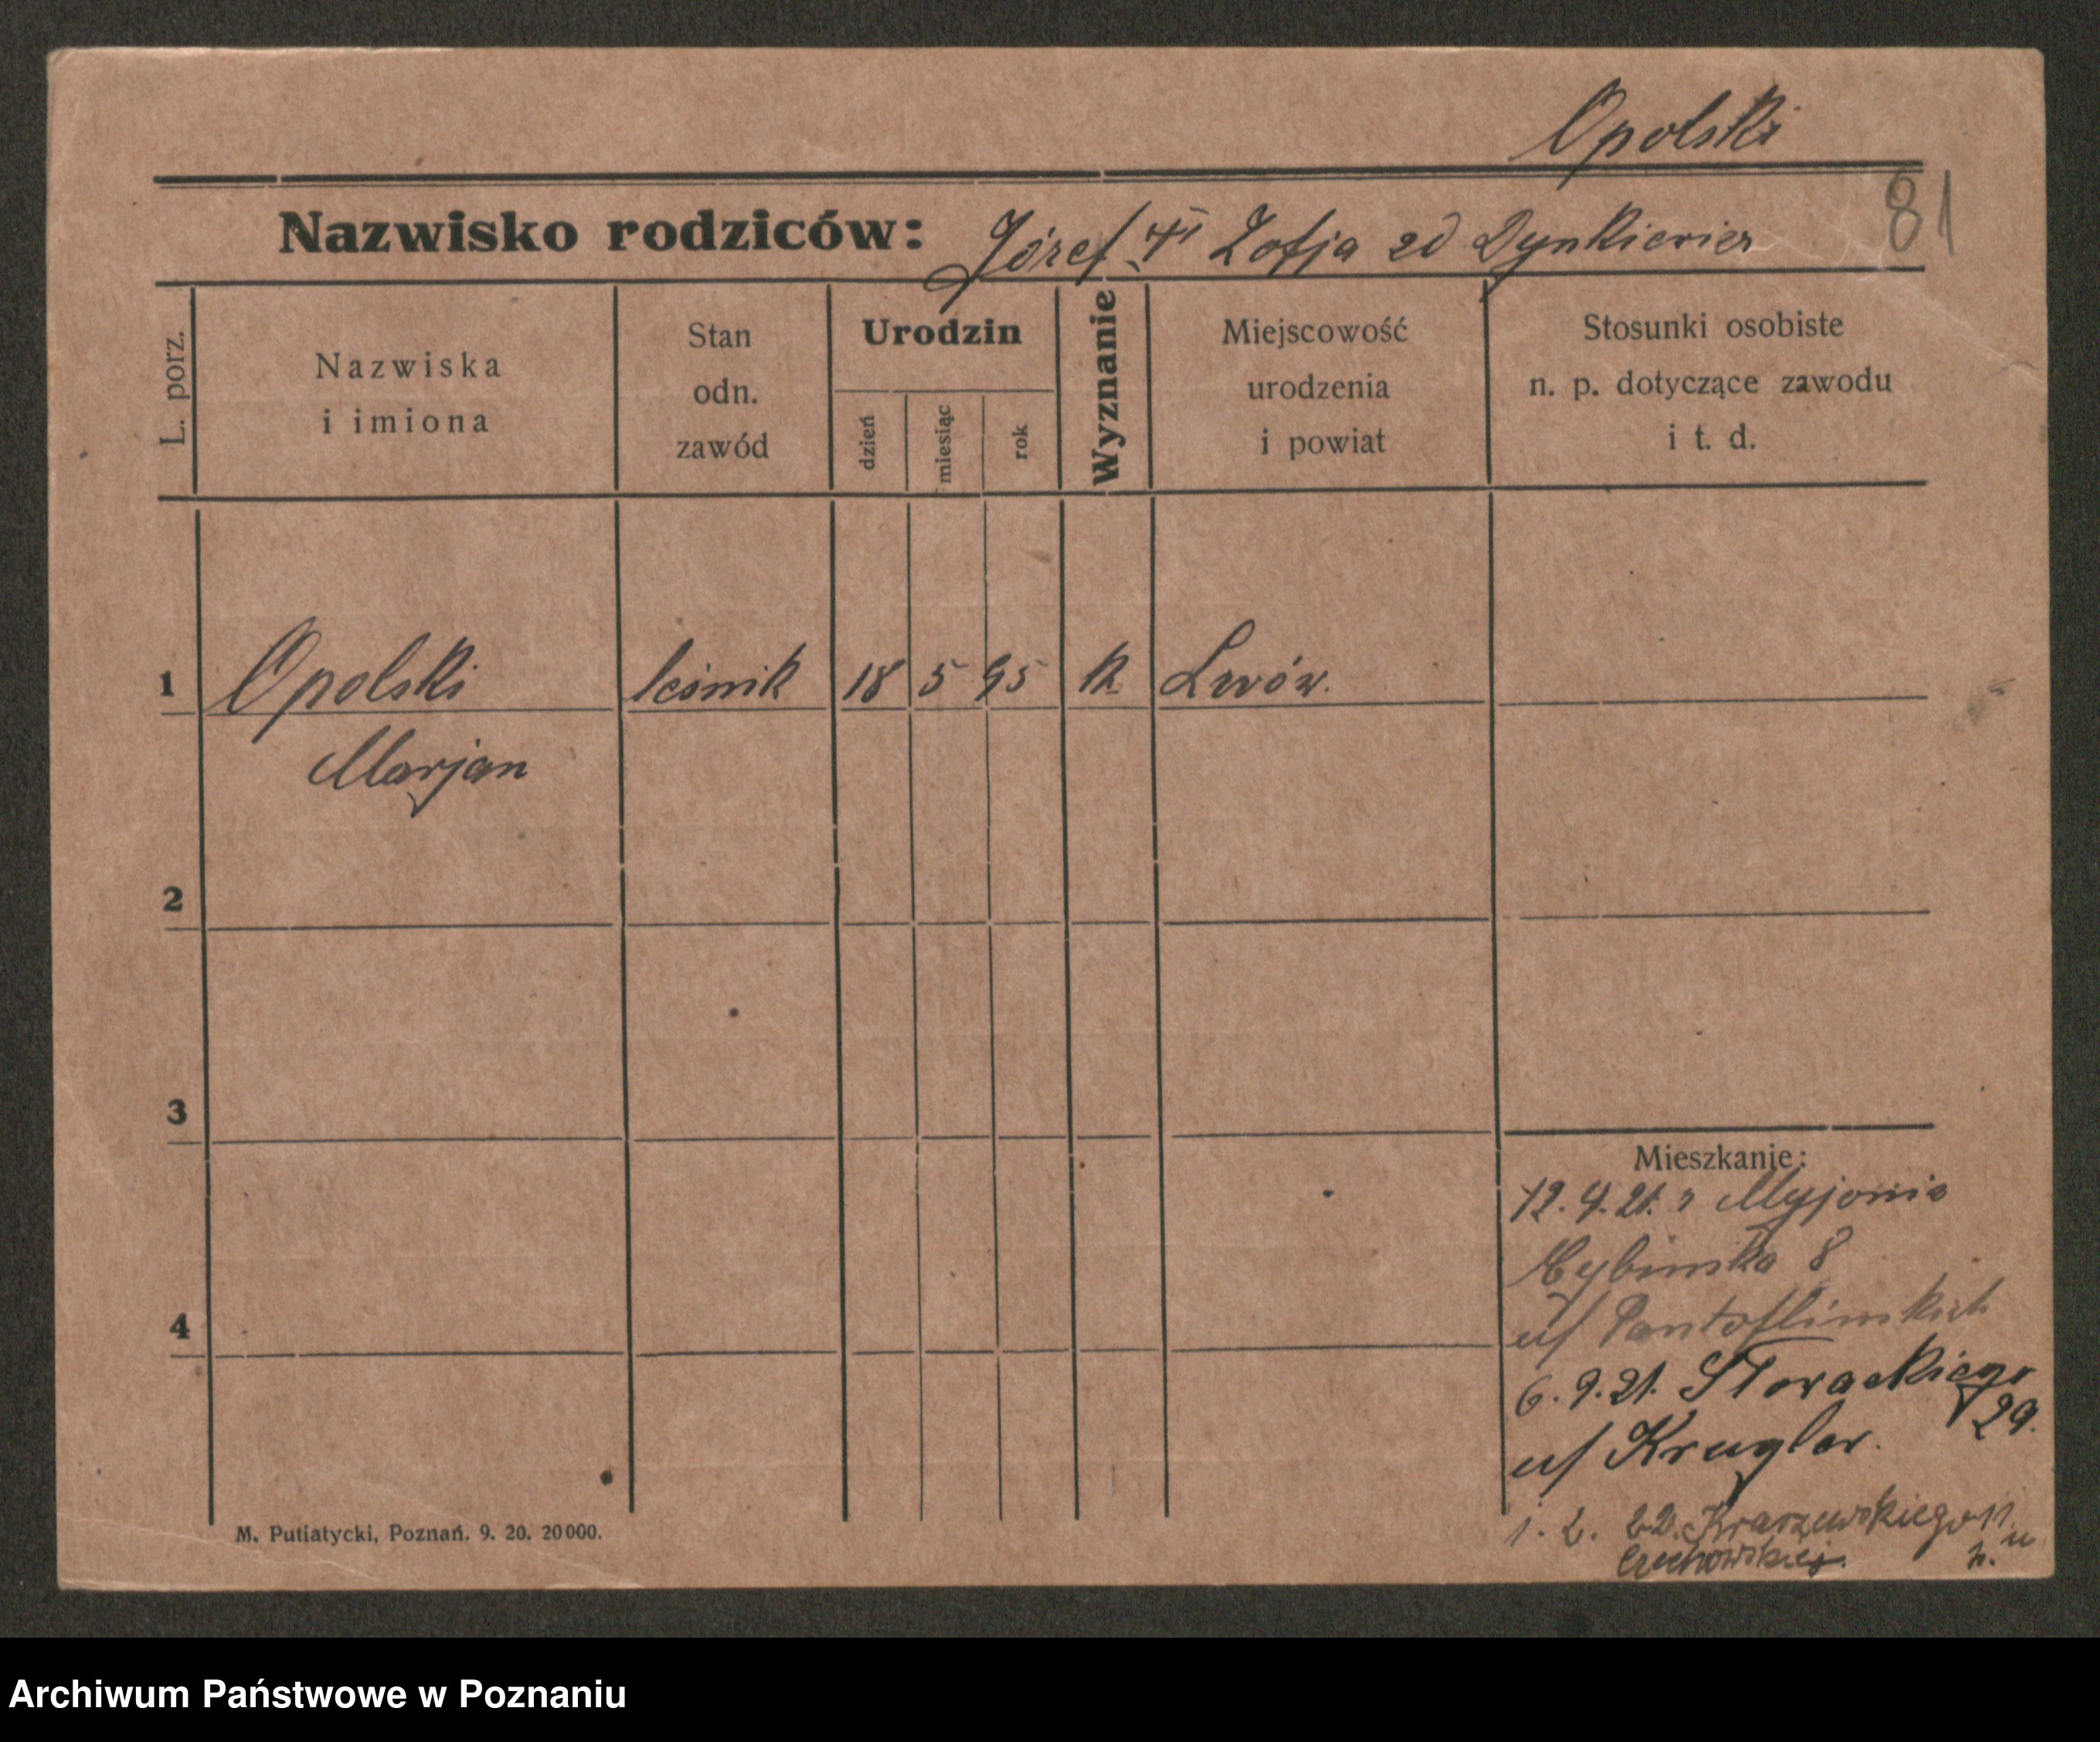 Opolski
81
Nazwisko rodziców: Józef i Zofja zd Dynkiewicz
L. porz.
Nazwiska
i imiona
Stan
odn.
zawód
Urodzin
dzień
miesiąc
rok
Wyznanie
Miejscowość
urodzenia
i powiat
Stosunki osobiste
n. p. dotyczące zawodu
i t. d.
1 Opolski leśnik 18 5 95 k Lwów.
Marjan
2
3
4
Mieszkanie:
12. 4. 21. Myjonia
Cybinska 8
u/
6. 9. 21. Słowackiego
29.
u/ Krugler.
1. 2. 22. Kraszewskiego 11 u
Czechowskiej.
M. Putiatycki, Poznań. 9. 20. 20000.
Archiwum Państwowe w Poznaniu